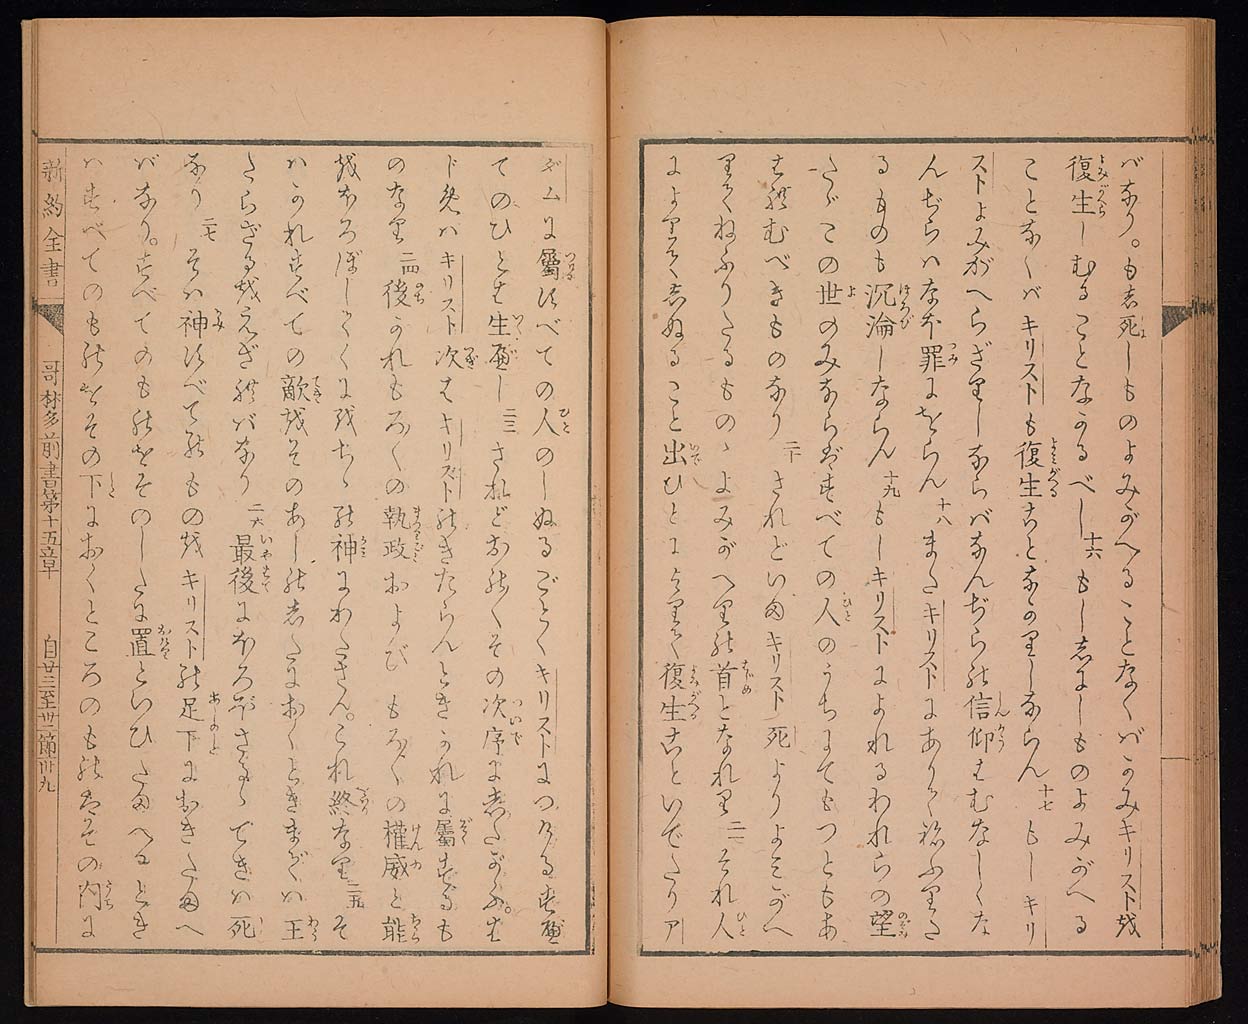 バなり。もし死しものよみがへることなくバかみキリストを
復生しむることなかるべし 十六 もし死にしものよみがへる
ことなくバキリストも復生ことなかりしならん 十七 もしキリ
ストよみがへらざりしならバなんぢらの信仰はむなしくな
んぢらハなほ罪にをらん 十八 またキリストにありてねふりた
るものも沉淪しならん 十九 もしキリストによれるわれらの望
たゞこの世のみならバすべての人のうちにてもつともあ
はれむべきものなり 二十 されどいまキリスト死よりよみがへ
りてねふりたるものゝよみがへりの首となれり 二一 それ人
によりてしぬること出ひとによりて復生こといでたりア
ダムに屬すべての人のしぬるごとくキリストにつけるすべ
てのひとは生べし 二三 されどおのくその次序にしたがふ。は
じめハキリスト次はキリストのきたらんときかれに屬するも
のなり 二四 後かれもろくの執政およびもろくの權威と能
をほろぼしてくにをちゝの神にわたさん。これ終なり 二五 そ
ハかれすべての敵をそのあしのしたにおくときまでハ王
たらざるをえざれバなり 二六 最後にほろぼさるゝてきハ死
なり 二七 そハ神すべてのものをキリストの足下におきたまへ
バなり。すべてのものをそのしたに置といひたまへるとき
ハすべてのものをその下におくところのものはその内に
新約全書 哥林多前書第十五章 自廿三至卅二節 卅九